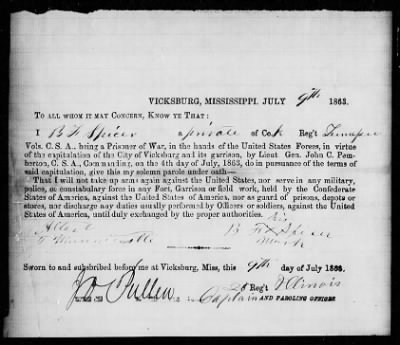 VICKSBURG, MISSISSIPPI, JULY 9th 1863.
TO ALL WHOM IT MAY CONCERN, KNOW YE THAT:
I B F Spicer a private of Co. K Reg't
Vols. C. S. A., being a Prisoner of War, in the hands of the United States Forces, in virtue
of the capitulation of the City of Vicksburg and its garrison, by Lieut. Gen. John C. Pem-
berton, C. S. A., Commanding, on the 4th day of July, 1863, do in pursuance of the terms of
said capitulation, give this my solemn parole under oath—
That I will not take up arms again against the United States, nor serve in any military,
police, or constabulary force in any Fort, Garrison or field work, held by the Confederate
States of America, against the United States of America, nor as guard of prisons, depots or
stores, nor discharge any duties usually performed by Officers or soldiers, against the United
States of America, until duly exchanged by the proper authorities.
his
Attest B F X Spicer
mark
Sworn to and subscribed before me at Vicksburg, Miss., this 9th day of July 1863.
Reg't Illinois
Captain AND PAROLING OFFICER.